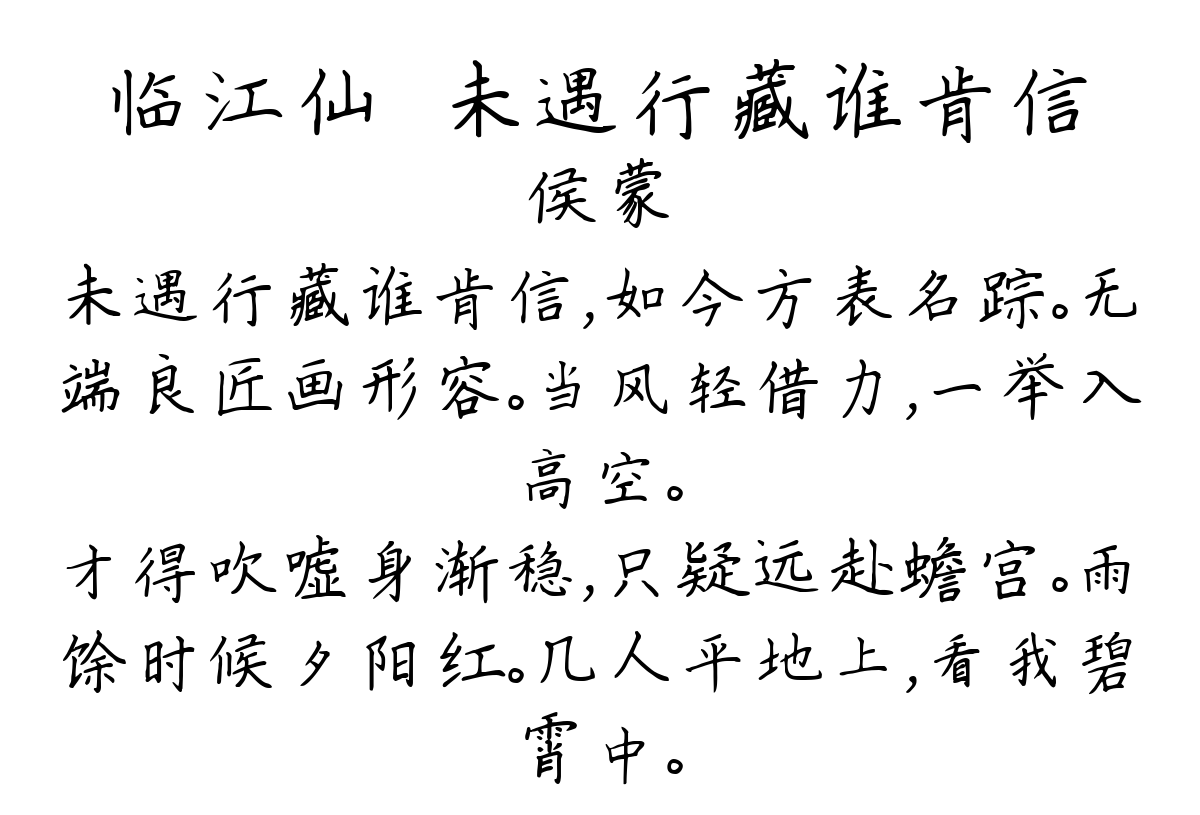 临江仙 未遇行藏谁肯信
侯蒙
未遇行藏谁肯信,如今方表名踪。无
端良匠画形容。当风轻借力,一举入
高空。
才得吹嘘身渐稳,只疑远赴蟾宫。雨
馀时候夕阳红。几人平地上,看我碧
霄中。